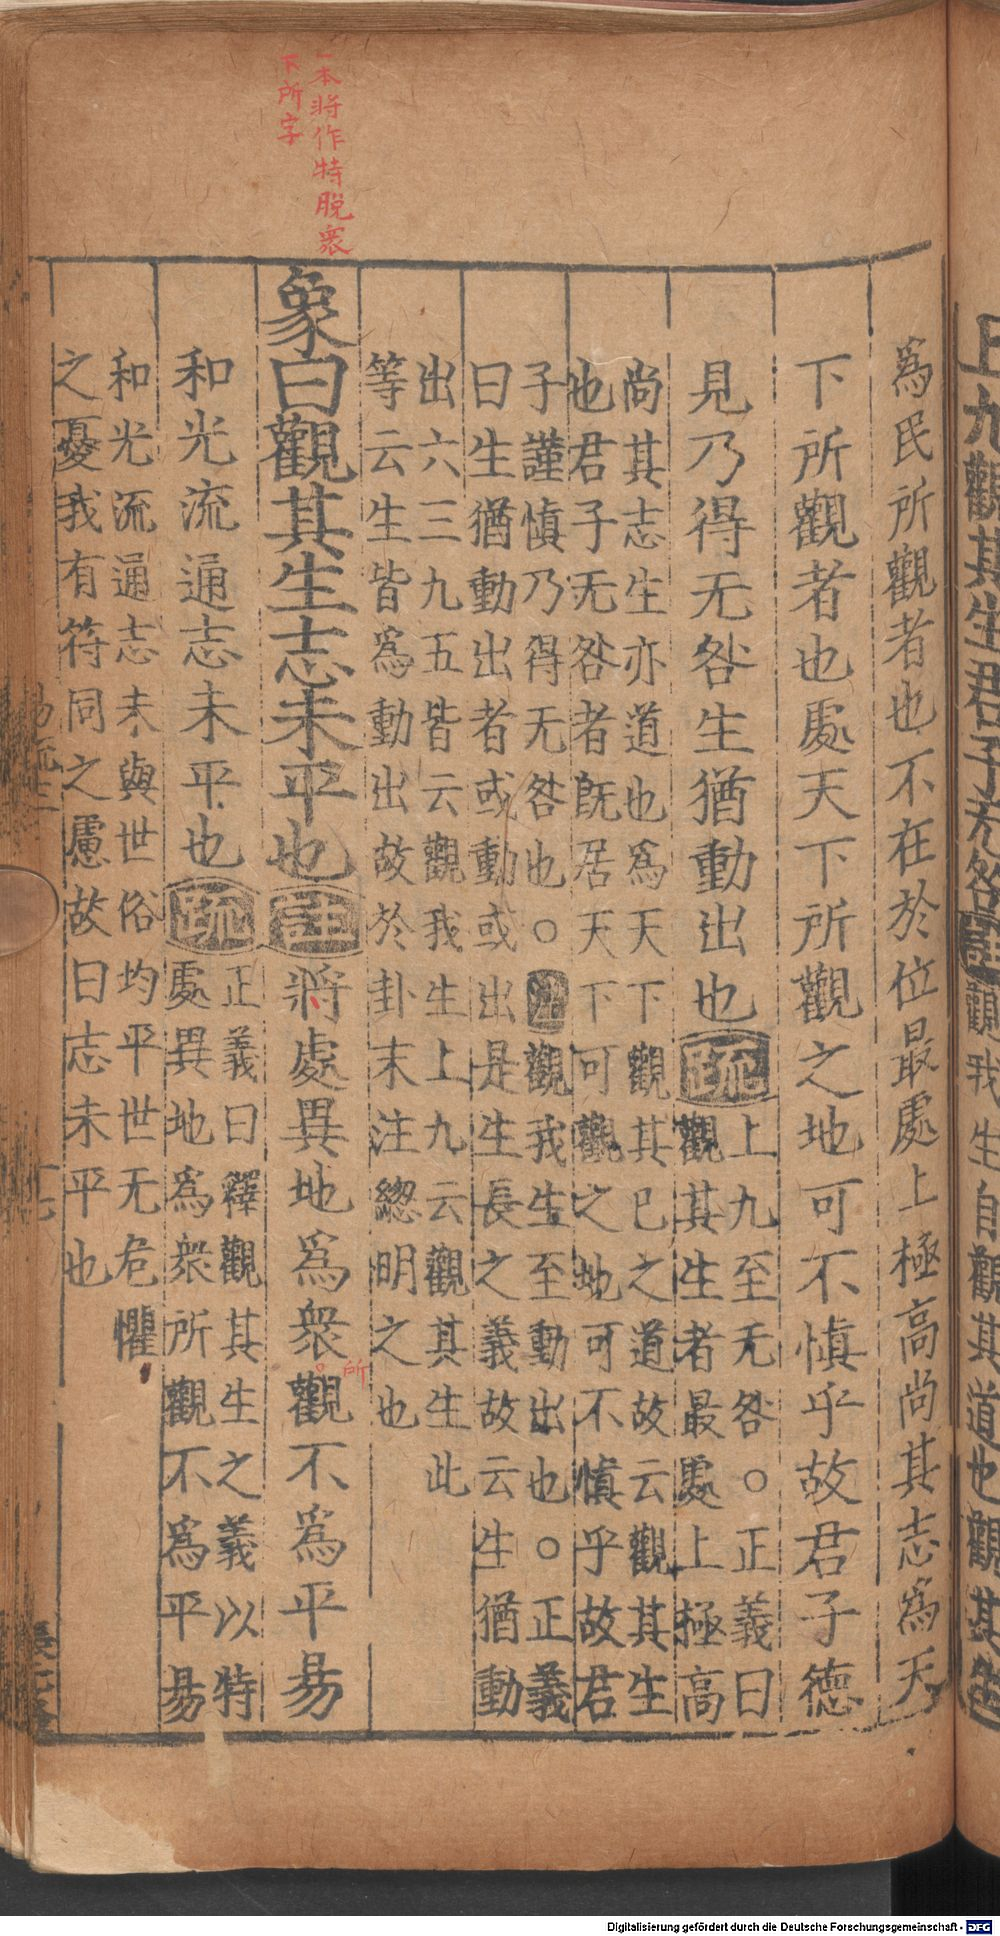 上九觀其生君子无咎註觀我生自觀其道也觀其生
爲民所觀者也不在於位最處上極高尚其志爲天
下所觀者也處天下所觀之地可不慎乎故君子德
見乃得无咎生猶動出也疏
上九至无咎○正義曰
觀其生者最處上極高
尚其志生亦道也爲天下觀其已之道故云觀其生
也君子无咎者旣居天下可觀之地可不慎乎故君
子謹慎乃得无咎也○注觀我生至動出也○正義
曰生猶動出者或動或出是生長之義故云生猶動
出六三九五皆云觀我生上九云觀其生此
等云生皆爲動出故於卦末注緫明之也
象曰觀其生志未平也註將處異地爲衆觀不爲平易
所
和光流通志未平也疏
正義曰釋觀其生之義以特
處異地爲衆所觀不爲平易
和光流通志未與世俗均平世无危懼
之憂我有符同之慮故曰志未平也
一本將作特脫衆
下所字
Digitalisierung gefördert durch die Deutsche Forschungsgemeinschaft - DFG